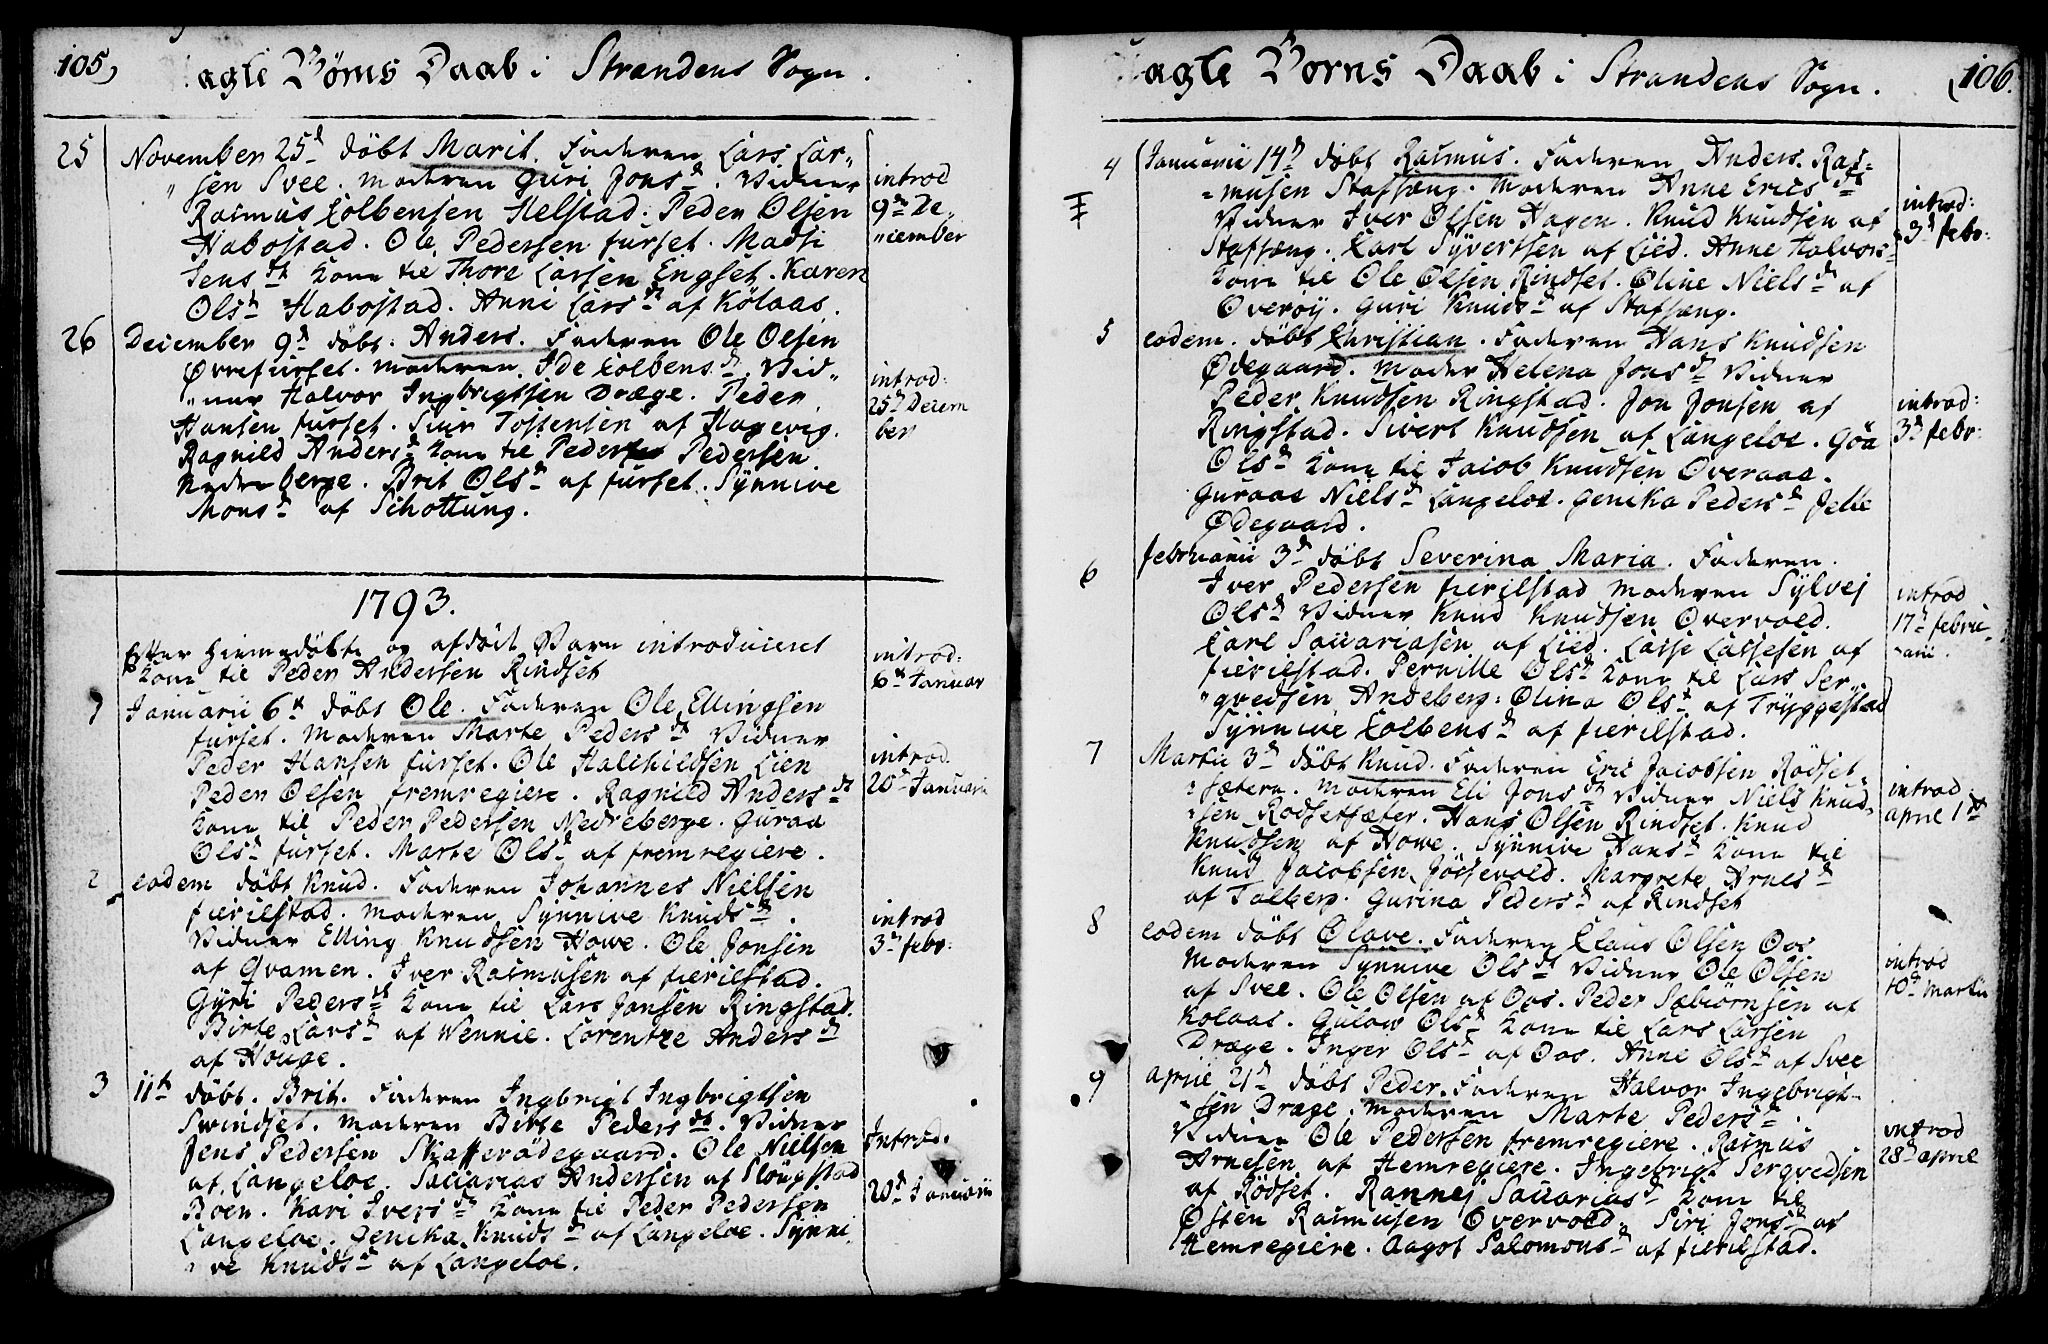 105)
agte Børns Daab i Strandens Sogn.
25 November 25d døbt Marit. Faderen Lars Lar„
„sen Svee. Moderen Guri Jonsd. Vidner
Rasmus Colbensen Helstad. Peder Olsen
Habostad. Ole Pedersen furset. Madsi
Jensdt Kone til Thore Larsen Engset. Karen
Olsdt Habostad. Anni Larsdt af Kölaas.
introd
9d De„
„cember
26 December 9d döbt: Anders. Faderen Ole Olsen
Øvrefurset. Moderen Ide Colbensd. Vid„
„ner Halvor Ingbrigtsen Dræge. Peder
Hansen furset. Siur Tostensen af Hagevig.
Ragnild Andersd Kone til Peder Pedersen
Nedreberge. Brit Olsd af furset. Synnive
Monsd af Schottung.
introd:
25d Decem
ber
1793.
Efter hiemedöbte og afdöd Barn introduceret
Kone til Peder Andersen Rindset
introd:
6d Januar
1 Januarii 6d döbt Ole. Faderen Ole Ellingsen
furset. Moderen Marte Pedersdt Vidner
Peder Hansen furset. Ole Halchildsen Lien
Peder Olsen fremregiere. Ragnild Andersdt
Kone til Peder Pedersen Nedreberge. Guraa
Olsd furset. Marte Olsd af fremregiere.
introd.
20d Januarii
2 eodem döbt Knud. Faderen Johannes Nielsen
fierilstad. Moderen Synnive Knudsd.
Vidner Elling Knudsen Howe. Ole Jonsen
af Qvamen. Iver Rasmusen af fierilstad.
Gyri Pedersdt Kone til Lars Jonsen Ringstad.
Birte Larsd af Wennie. Lorentze Andersdt
af Houge.
introd
3d febr:
3 11d döbt. Brit. Faderen Ingbrigt Ingbrigtsen
Swindset. Moderen Birte Pedersdt. Vidner
Jens Pedersen Skafferödegaard. Ole Nielsen
af Langeloe. Saccarias Andersen af Slougstad
Boen. Kari Iversdt Kone til Peder Pedersen
Langeloe. Genika Knudsd af Langeloe. Synni
„ve Knudsd af Langeloe.
Introd.
20d Januarii
agte Børns Daab i Strandens Sogn.
106.
4 Januarii 14d döbt Rasmus. Faderen Anders Ras-
-musen Stafsæng. Moderen Anne Ericsdt
Vidner Iver Olsen Hagen. Knud Knudsen af
Stafsæng. Carl Syvertsen af Lied. Anne Halvors-
Kone til Ole Olsen Rindset. Oline Nielsd af
Overøy. Guri Knudsd af Stafsæng.
introd:
3d febr:
5 eodem. döbt Christian. Faderen Hans Knudsen
Ødegaard. Moder Helena Jonsd Vidner
Peder Knudsen Ringstad. Jon Jonsen af
Ringstad. Sivert Knudsen af Langeloe. Göa
Olsd Kone til Jacob Knudsen Overaas.
Guraae Nielsd Langeloe. Genika Pedersd Jelle
Ødegaard.
introd:
3d febr:
6 februarii 3d döbt Severina Maria. Faderen.
Iver Pedersen fierilstad Moderen Sylvej
Olsd Vidner Knud Knudsen Overvold.
Carl Saccariasen af Lied. Lasse Lassesen af
fierilstad. Pernille Olsd Kone til Lars Ser„
„gvedsen Andeberg: Olina Olsd af Tryggestad
Synnive Colbensd af fierilstad.
introd
17d febru-
-arii.
7 Martii 3d döbt Knud. Faderen Eric Jacobsen Rödset-
-sætern. Moderen Eli Jonsdt Vidner Niels Knud-
-sen Rodsetsæter. Hans Olsen Rindset. Knud
Knudsen af Howe. Synnive Hansd Kone til
Knud Jacobsen Jödsevold. Margrete Arnesd
af Talberg. Gurina Pedersd af Rindset
introd
april 1d
8 eodem döbt Olave. Faderen Claus Olsen Oos
Moderen Synnive Olsdt Vidner Ole Olsen
af Svee. Ole Olsen af Oos. Peder Sæbiörnsen af
Kolaas. Gulow Olsd Kone til Lars Larsen
Dræge. Inger Olsd af Oos. Anne Olsd af Svee
introd
10d Martii
9 april 21d döbt Peder. Faderen Halvor Ingebrigt-
-sen Dræge. Moderen Marte Pedersd.
Vidner Ole Pedersen fremregiere. Rasmus
Arnesen af Hemregiere. Ingebrigt Sergvedsen
af Rödset. Rannej Saccariasd Kone til
Østen Rasmusen Overvold. Siri Jonsd af
Hemregiere. Aagot Salomonsd af fierilstad.
introd
28d april